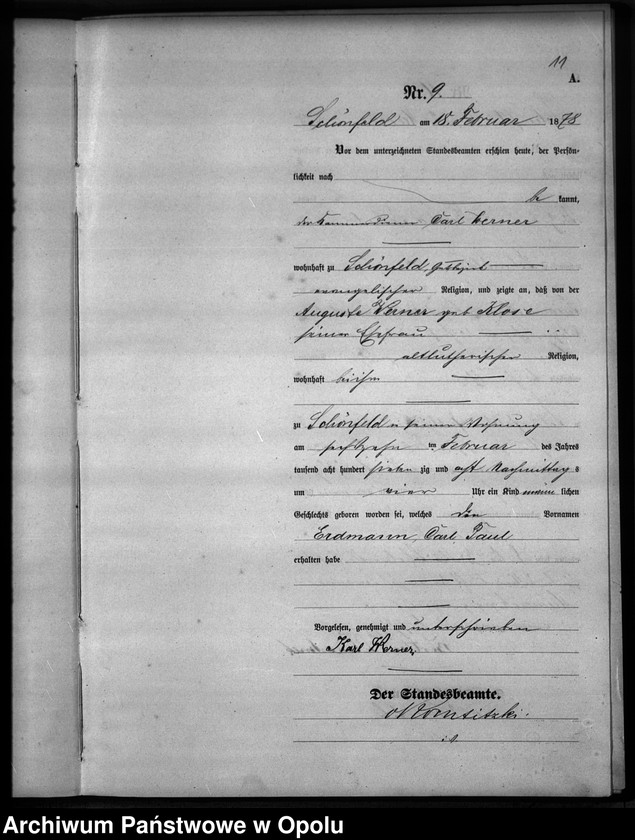 11
A.
Nr. 9.
Schönfeld am 18. Februar 1878
Vor dem unterzeichneten Standesbeamten erschien heute, der Persön-
lichkeit nach
be kannt,
der Carl Werner
wohnhaft zu Schönfeld,
evangelischer Religion, und zeigte an, daß von der
Auguste Werner geb Klose
seiner Ehefrau
altlutherischer Religion,
wohnhaft bei ihm
zu Schönfeld in seiner Wohnung
am sechzehn ten Februar des Jahres
tausend acht hundert sieben zig und acht Nachmittag s
um vier Uhr ein Kind männ lichen
Geschlechts geboren worden sei, welches den Vornamen
Erdmann, Carl, Paul
erhalten habe
Vorgelesen, genehmigt und unterschrieben
Karl Werner,
Der Standesbeamte.
Archiwum Państwowe w Opolu